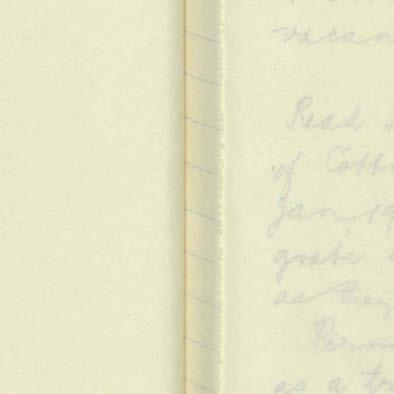 vacan
Read
of Cott
Jan 19
grate
as they
Perm
as a tr